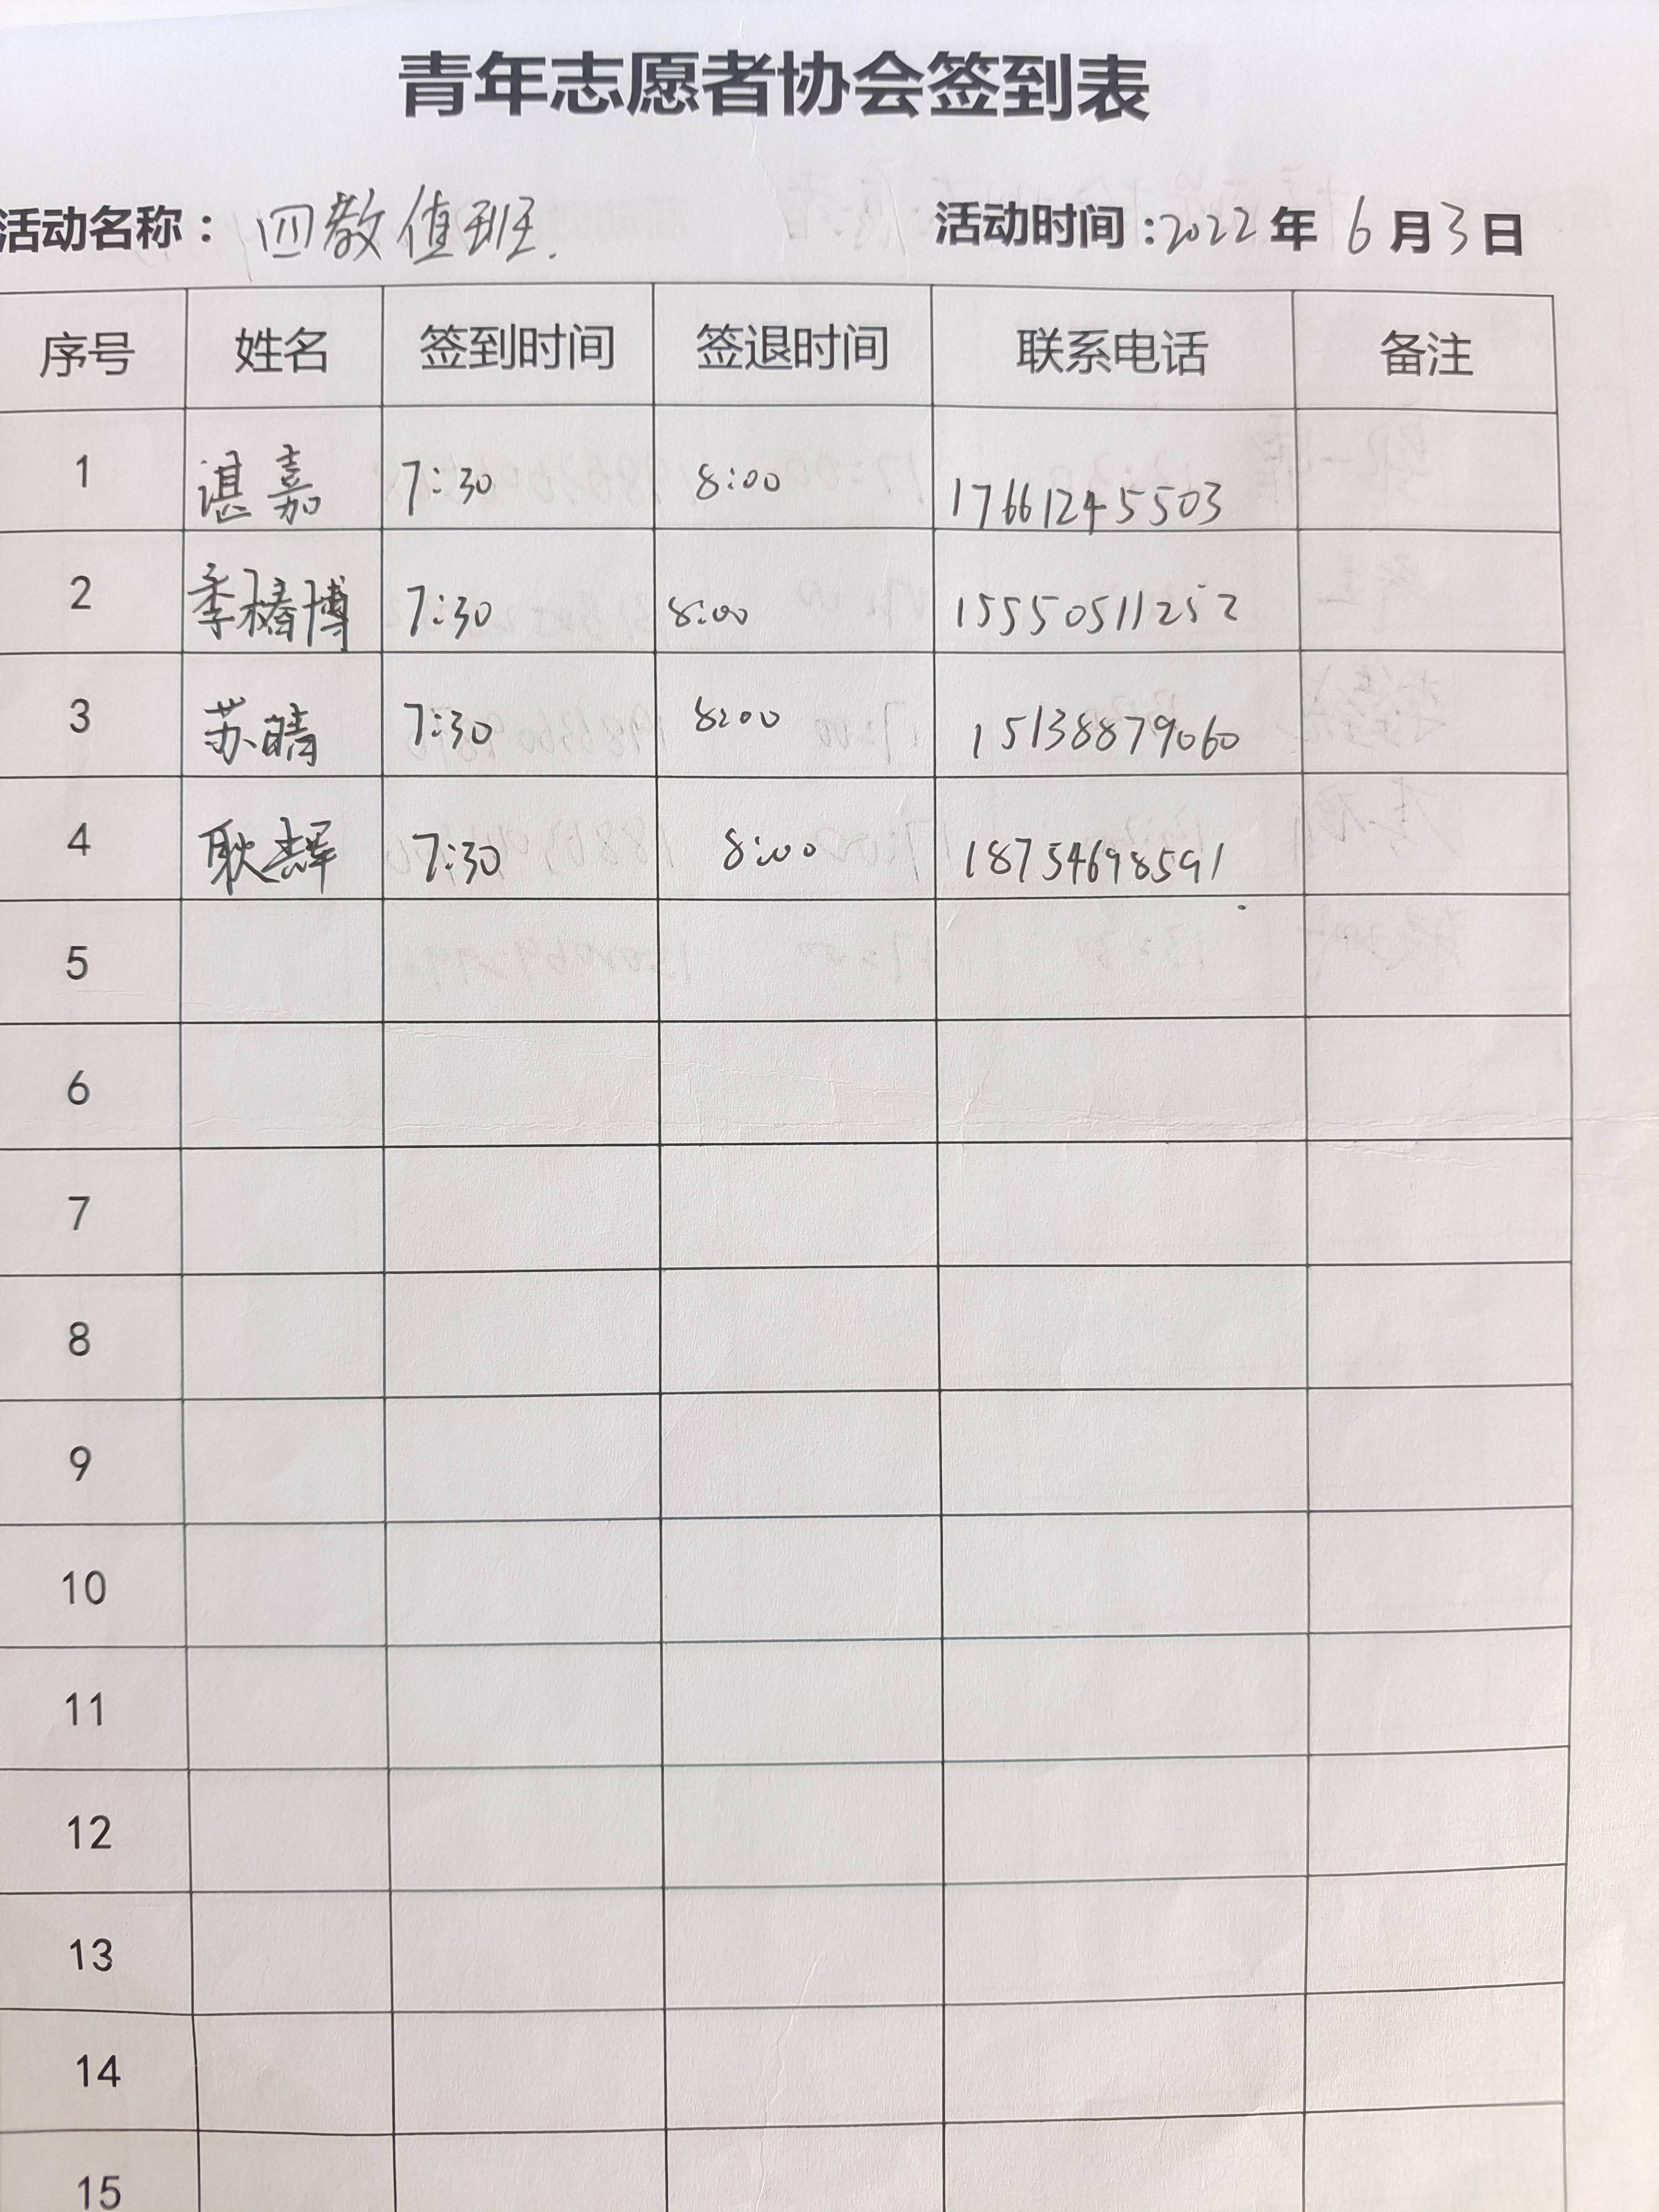 青年志愿者协会签到表
活动名称： 四教值班. 活动时间:2022年6月3日
序号 姓名 签到时间 签退时间 联系电话 备注
1 谌嘉 7:30 8:00 17661245503
2 季椿博 7:30 8:00 15550511252
3 苏晴 7:30 8:00 15138879060
4 耿辉 7:30 8:00 18754698591
5
6
7
8
9
10
11
12
13
14
15